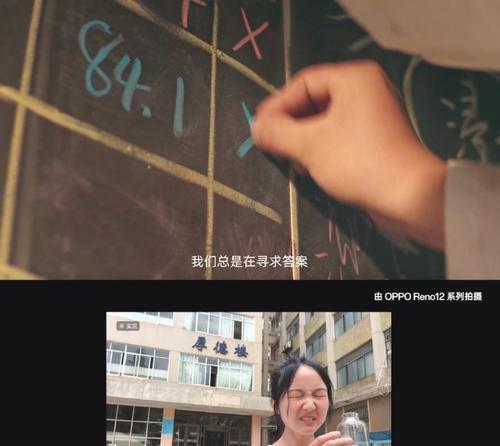 84.1
我们总是在寻求答案
由 OPPO Reno12 系列拍摄
实况
厚德楼